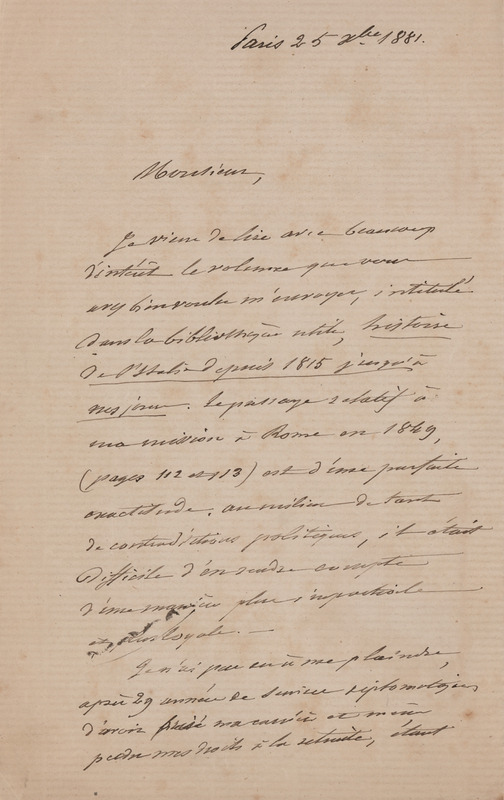 Paris 25 Xbre 1881.
Monsieur,
Je viens de lire avec beaucoup
d'intérêt le volume que vous
avez bien voulu m'envoyer, intitulé
dans la bibliothèque utile, histoire
de l'Italie depuis 1815 jusqu'à
nos jours. le passage relatif à
ma mission à Rome en 1849,
(pages 112 et 113) est d'une parfaite
exactitude. au milieu de tant
de contradictions politiques, il était
difficile d'en rendre compte
d'une manière plus impartiale
et plus loyale. —
Je n'ai pas eu à me plaindre,
après 29 années de service diplomatique,
d'avoir brisé ma carrière et même
perdu mes droits à la retraite, étant